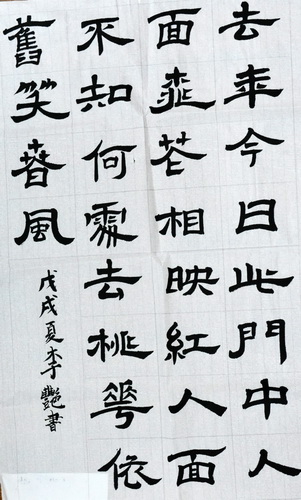 去年今日此門中人
面桃花相映紅人面
不知何處去桃華依
舊笑春風
戊戌夏李艷書